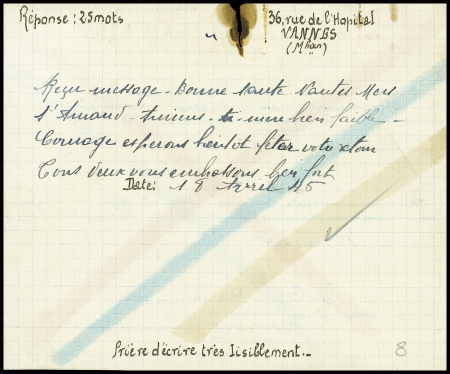 Réponse : 25 mots
36, rue de l'Hopital
VANNES
(Mhan)
Reçu message - Bonne santé Nantes Mers
St Amand - Amiens - bien faible -
Courage esperons bientôt fêter votre
Tous deux vous embrassons bien fort
Date: 18 Avril 45
Prière d'écrire très lisiblement._
8